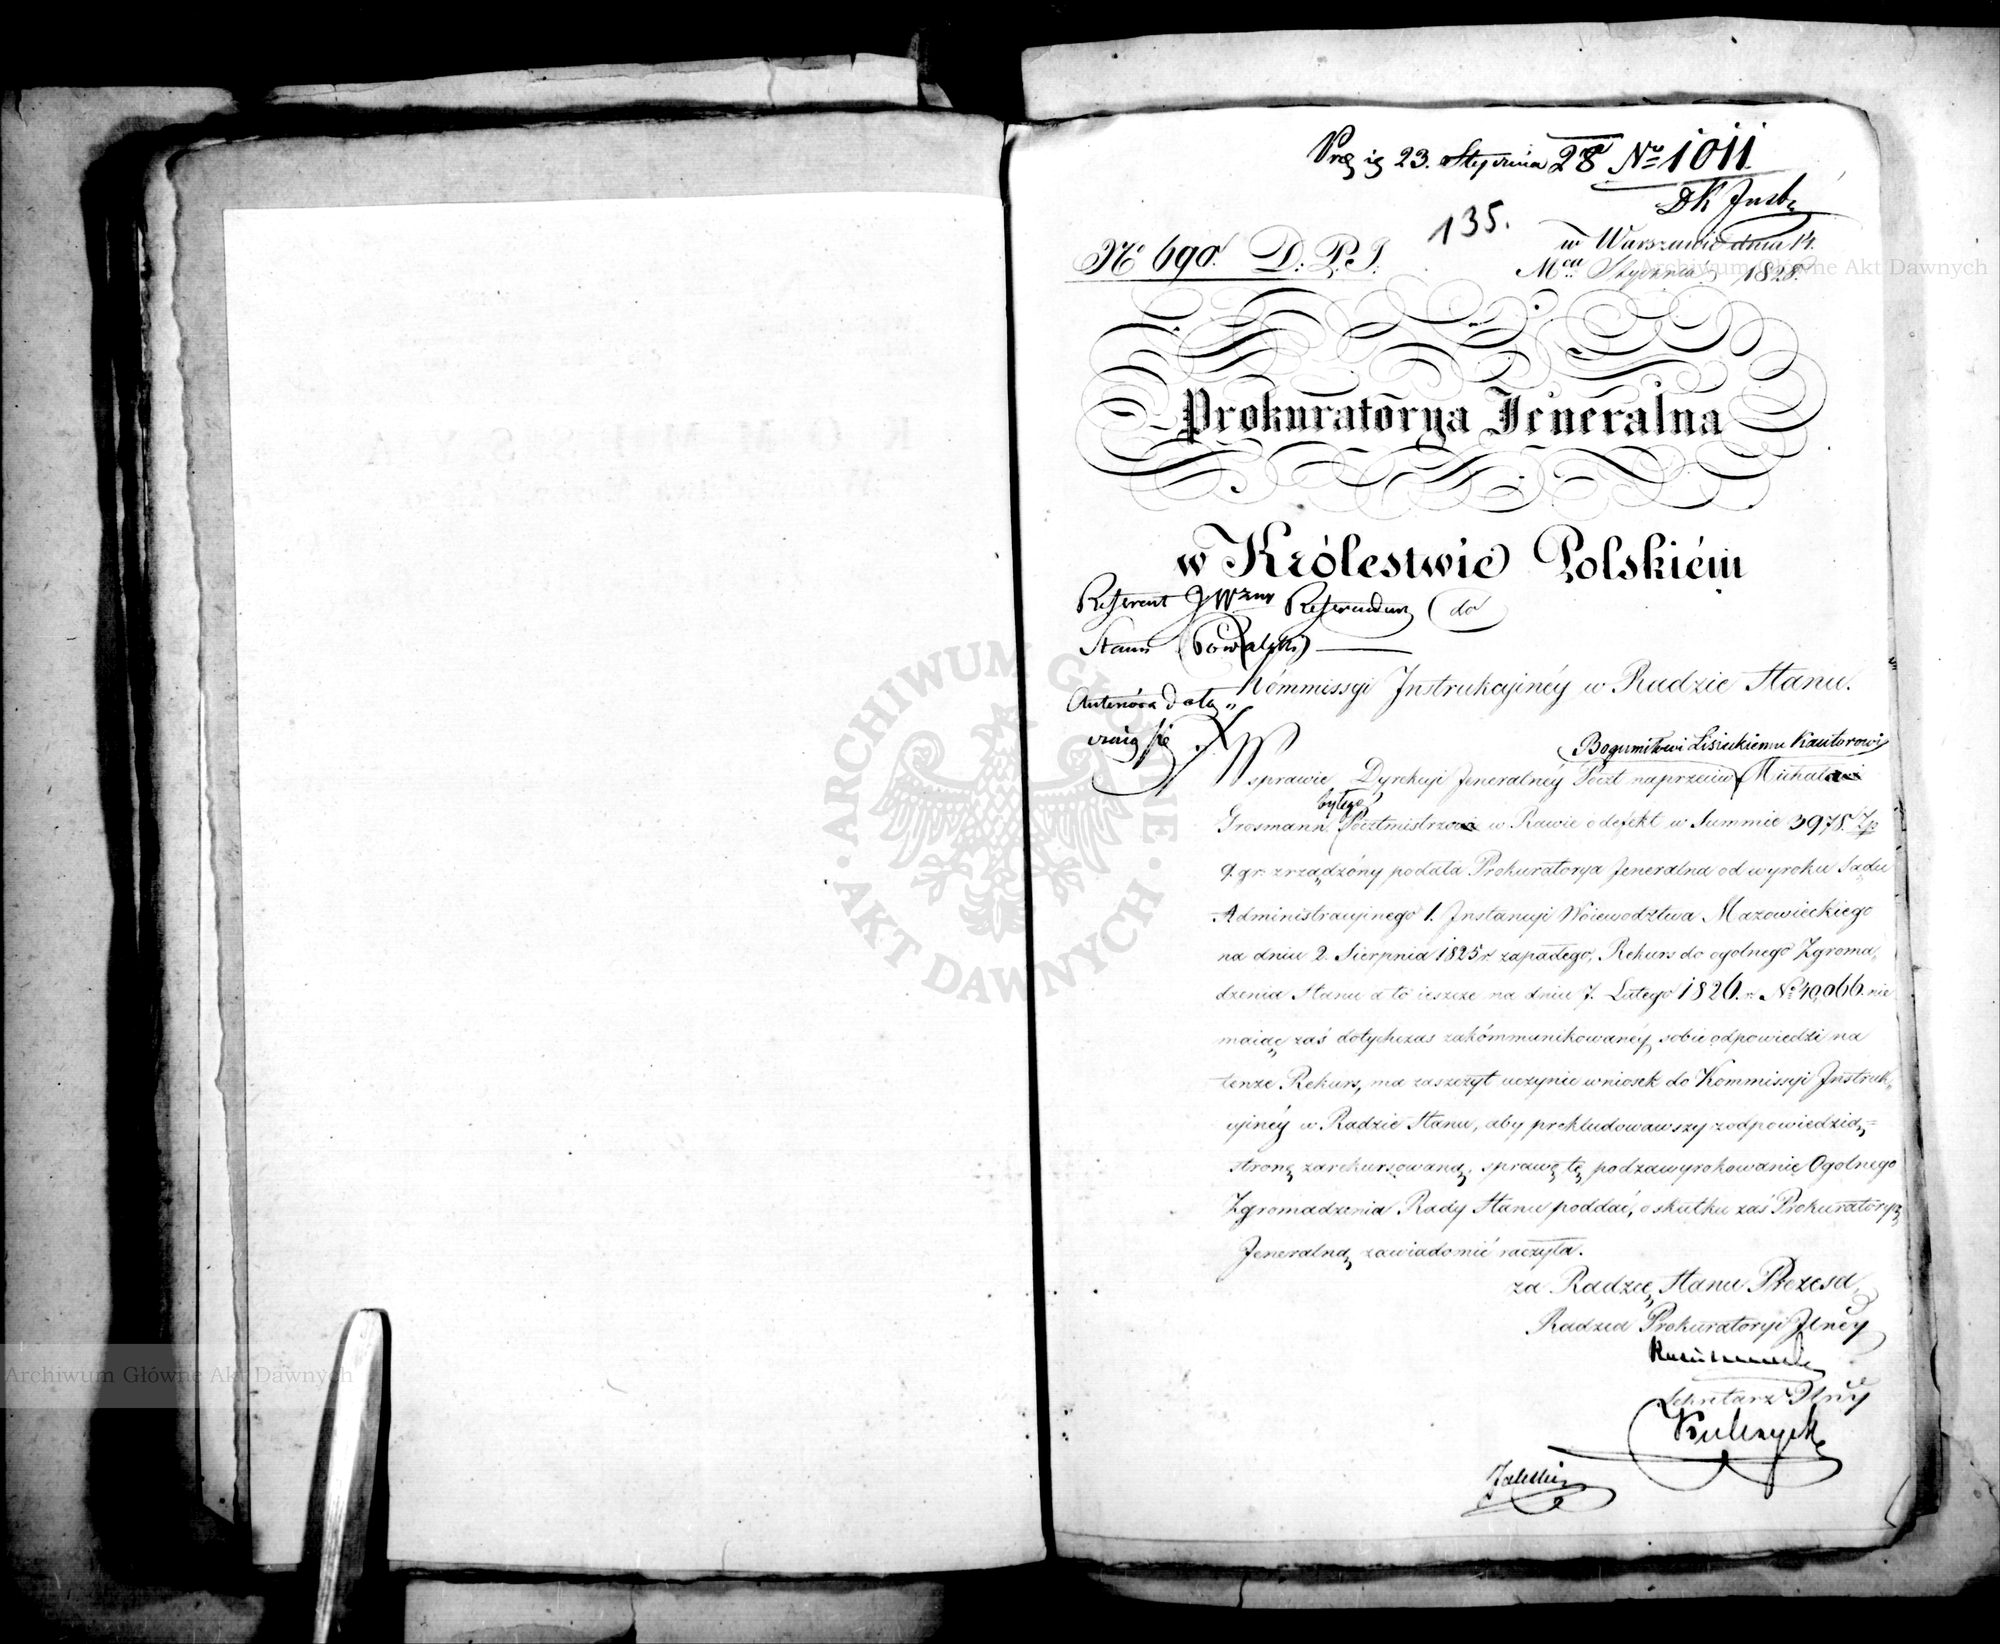 23. Stycznia 28 No 1011
135.
No 690. D. P. J.
w Warszawie dnia 14.
Mca Stycznia 1828.
Prokuratorya Jeneralna
w Królestwie Polskiém
Referent JW Referendarz do
Stanu
Kómmissyi Instrukcyinéy w Radzie Stanu.
się
Bogumiłowi Lisieckiemu Kantorowi
W sprawie Dyrekcyi Jeneralnéy Poczt naprzeciw Michałowi
byłego
Grosmann Pocztmistrzowi w Rawie o defekt w Summie 3978. Zp
9. gr: zrządzóny podała Prokuratorya Jeneralna od wyroku Sądu
Administracyinego 1. Instancyi Woiewodztwa Mazowieckiego
na dniu 2. Sierpnia 1825 r. zapadłego, Rekurs do ogolnego Zgroma„
dzenia Stanu a to ieszcze na dniu 7. Lutego 1826. r. No 40,066. nie
maiąc zaś dotychczas zakómmunikowanéy sobie odpowiedzi na
tenże Rekurs, ma zaszczyt uczynić wniosek do Kommissyi Instruk„
cyinéy w Radzie Stanu, aby prekludowawszy z odpowiedzią
stronę zarekursowaną, sprawę tę pod zawyrokowanie Ogolnego
Zgromadzenia Rady Stanu poddać, o skutku zaś Prokuratoryą
Jeneralną zawiadomić raczyła.
za Radzcę Stanu Prezesa,
Radzca Prokuratoryi Jlnéy
Sekretarz Jlny
ARCHIWUM GŁÓWNE · AKT DAWNYCH ·
Archiwum Główne Akt Dawnych
Archiwum Główne Akt Dawnych